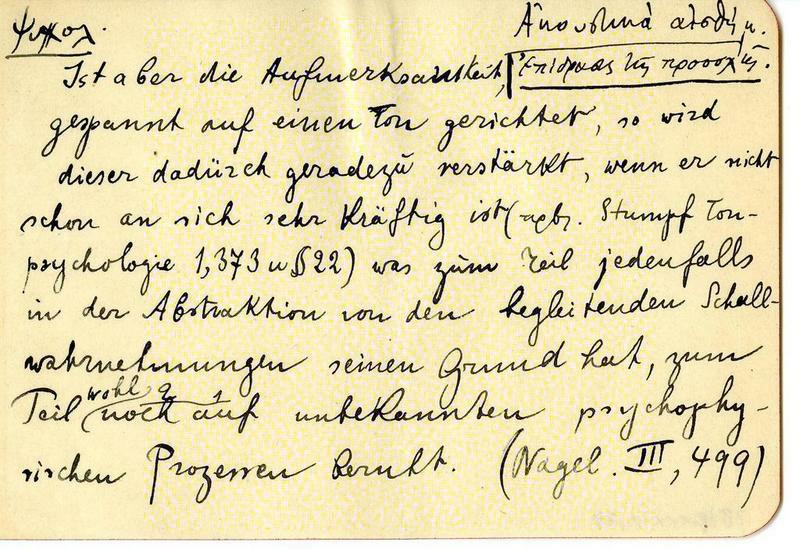 Ψυχολ.
Ἀκουστικὰ αἰσθήμ.
Ἐπίδρασις τῆς προσοχῆς.
Ist aber die Aufmerksamkeit,
gespannt auf einen Ton gerichtet, so wird
dieser dadurch geradezu verstärkt, wenn er nicht
schon an sich sehr kräftig ist (vgl. Stumpf Ton-
psychologie 1,373 u §22) was zum Teil jedenfalls
in der Abstraktion von den begleitenden Schall-
wahrnehmungen seinen Grund hat, zum
wohl
Teil noch auf unbekannten psychophy-
sischen Prozessen beruht. (Nagel. III, 499)